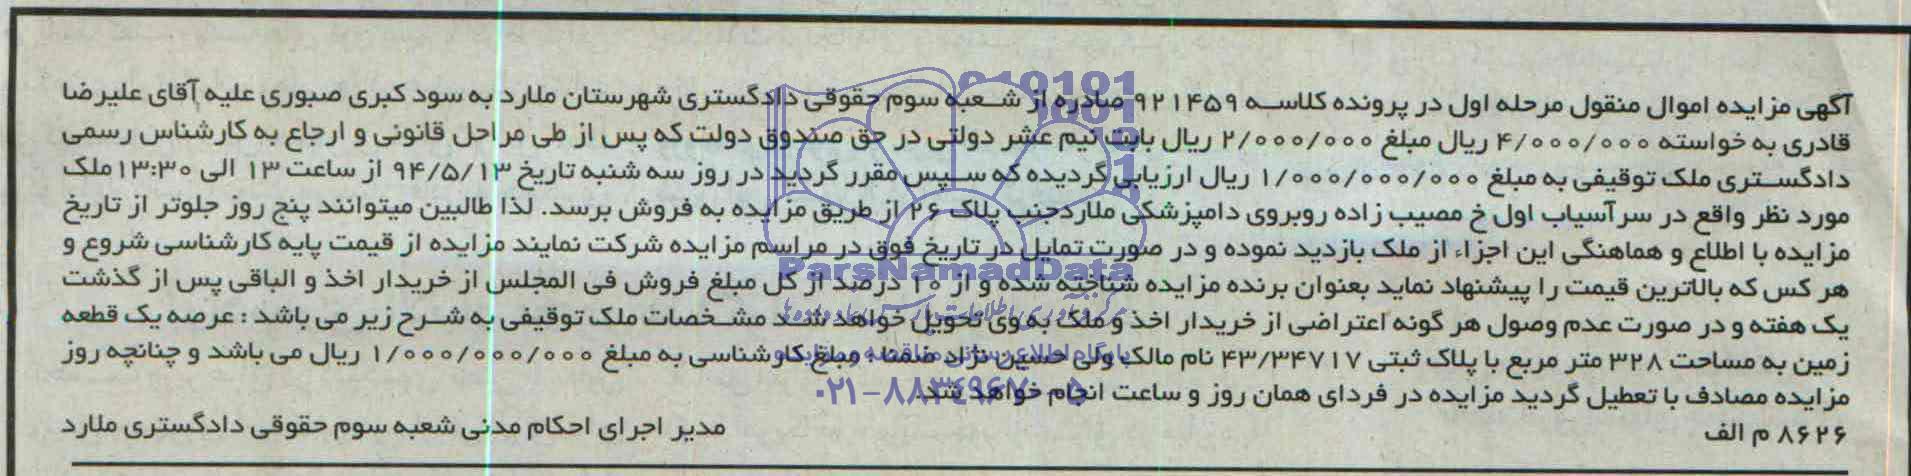 آگهی مزایده اموال منقول مرحله اول در پرونده کلاسه ۹۲۱۴۵۹ صادره از شعبه سوم حقوقی دادگستری شهرستان ملارد به سود کبری صبوری علیه آقای علیرضا
قادری به خواسته ۴/۰۰۰/۰۰۰ ریال مبلغ ۲/۰۰۰/۰۰۰ ریال بابت نیم عشر دولتی در حق صندوق دولت که پس از طی مراحل قانونی و ارجاع به کارشناس رسمی
دادگستری ملک توقیفی به مبلغ ۱/۰۰۰/۰۰۰/۰۰۰ ریال ارزیابی گردیده که سپس مقرر گردید در روز سه شنبه تاریخ ۹۴/۵/۱۳ از ساعت ۱۳ الی ۱۳:۳۰ ملک
مورد نظر واقع در سرآسیاب اول خ مصیب زاده روبروی دامپزشکی ملارد جنب پلاک ۲۶ از طریق مزایده به فروش برسد. لذا طالبین میتوانند پنج روز جلوتر از تاریخ
مزایده با اطلاع و هماهنگی این اجزاء از ملک بازدید نموده و در صورت تمایل در تاریخ فوق در مراسم مزایده شرکت نمایند مزایده از قیمت پایه کارشناسی شروع و
هر کس که بالاترین قیمت را پیشنهاد نماید بعنوان برنده مزایده شناخته شده و از ۱۰ درصد از کل مبلغ فروش فی المجلس از خریدار اخذ و الباقی پس از گذشت
یک هفته و در صورت عدم وصول هر گونه اعتراضی از خریدار اخذ و ملک به وی تحویل خواهد شد مشخصات ملک توقیفی به شرح زیر می باشد : عرصه یک قطعه
زمین به مساحت ۳۲۸ متر مربع با پلاک ثبتی ۴۳/۳۴۷۱۷ نام مالک ولی حسین نژاد ضمنا : مبلغ کارشناسی به مبلغ ۱/۰۰۰/۰۰۰/۰۰۰ ریال می باشد و چنانچه روز
مزایده مصادف با تعطیل گردید مزایده در فردای همان روز و ساعت انجام خواهد شد.
۸۶۲۶ م الف
مدیر اجرای احکام مدنی شعبه سوم حقوقی دادگستری ملارد
ParsNamadData
۰۲۱-۸۸۳۴۹۶۷۰-۵